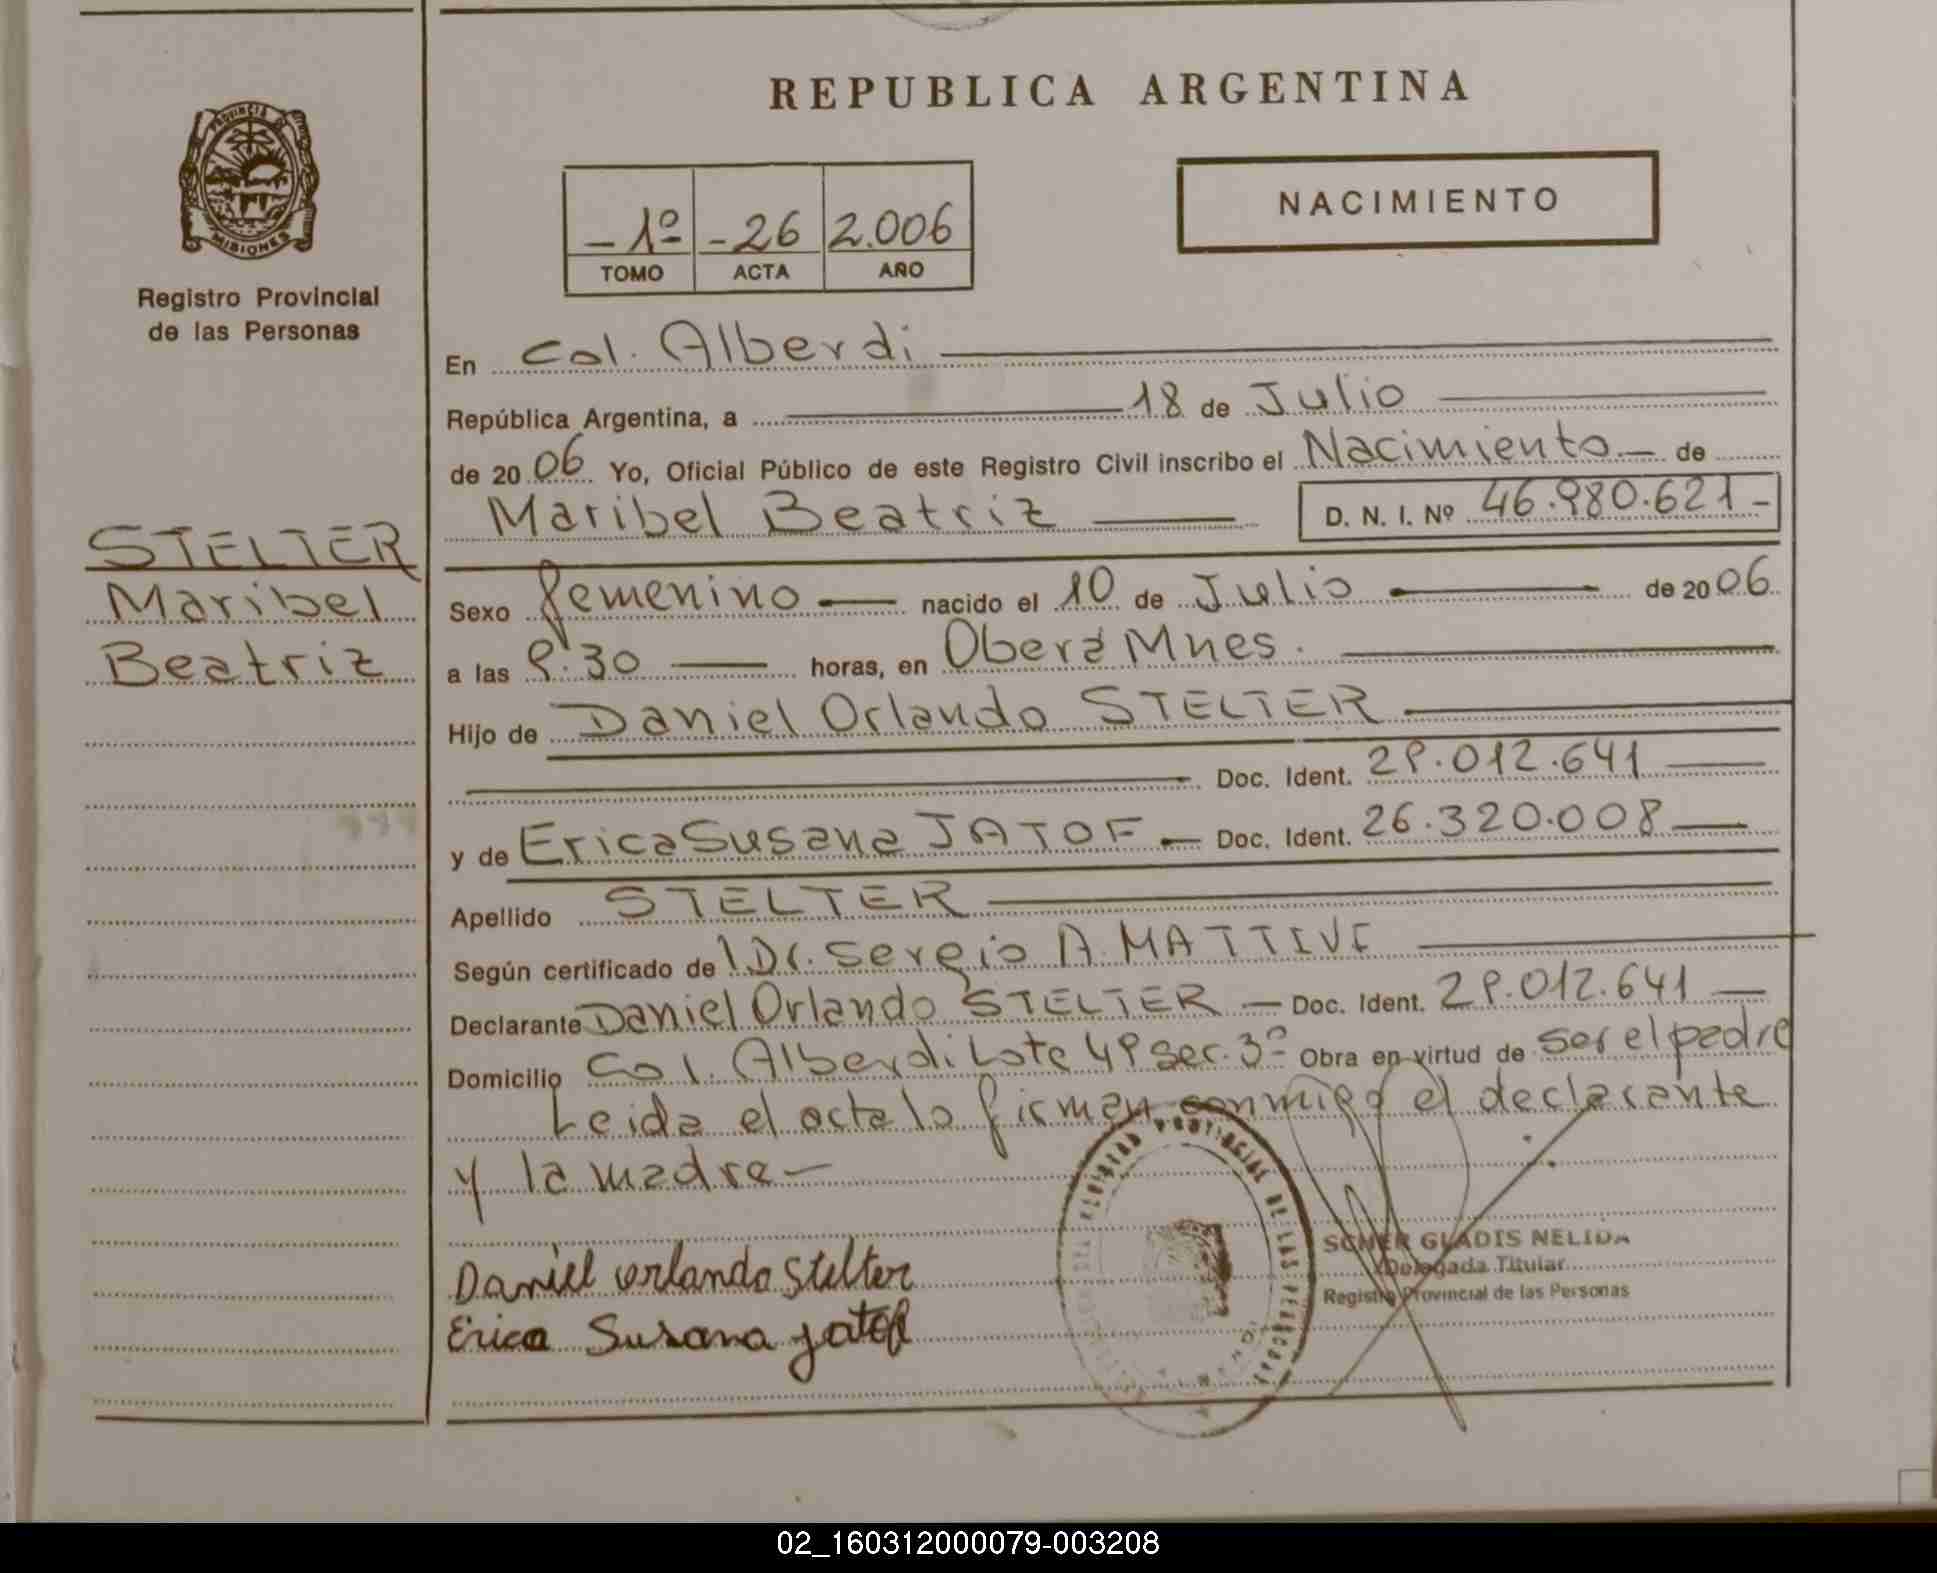 REPUBLICA ARGENTINA
PROVINCIA DE
MISIONES
Registro Provincial
de las Personas
NACIMIENTO
-1º -26 2.006
TOMO ACTA AÑO
En Col. Alberdi
República Argentina, a 18 de Julio
de 2006 Yo, Oficial Público de este Registro Civil inscribo el Nacimiento de
Maribel Beatriz D. N. I. Nº 46.980.621-
STELTER
Maribel
Beatriz
Sexo femenino nacido el 10 de Julio de 2006
a las 9:30 horas, en Oberá Mnes.
Hijo de Daniel Orlando STELTER
Doc. Ident. 29.012.641
y de Erica Susana JATOF Doc. Ident. 26.320.008
Apellido STELTER
Según certificado de Dr. Sergio A. MATTIVE
Declarante Daniel Orlando STELTER Doc. Ident. 29.012.641
Domicilio Col. Alberdi Lote 49 Sec. 3º Obra en virtud de ser el padre
Leida el acta lo firman conmigo el declarante
y la madre
Daniel orlando stelter
Erica Susana jatof
PROVINCIAL DE LAS PERSONAS
SCHER GLADIS NELIDA
Delegada Titular
Registro Provincial de las Personas
02_160312000079-003208